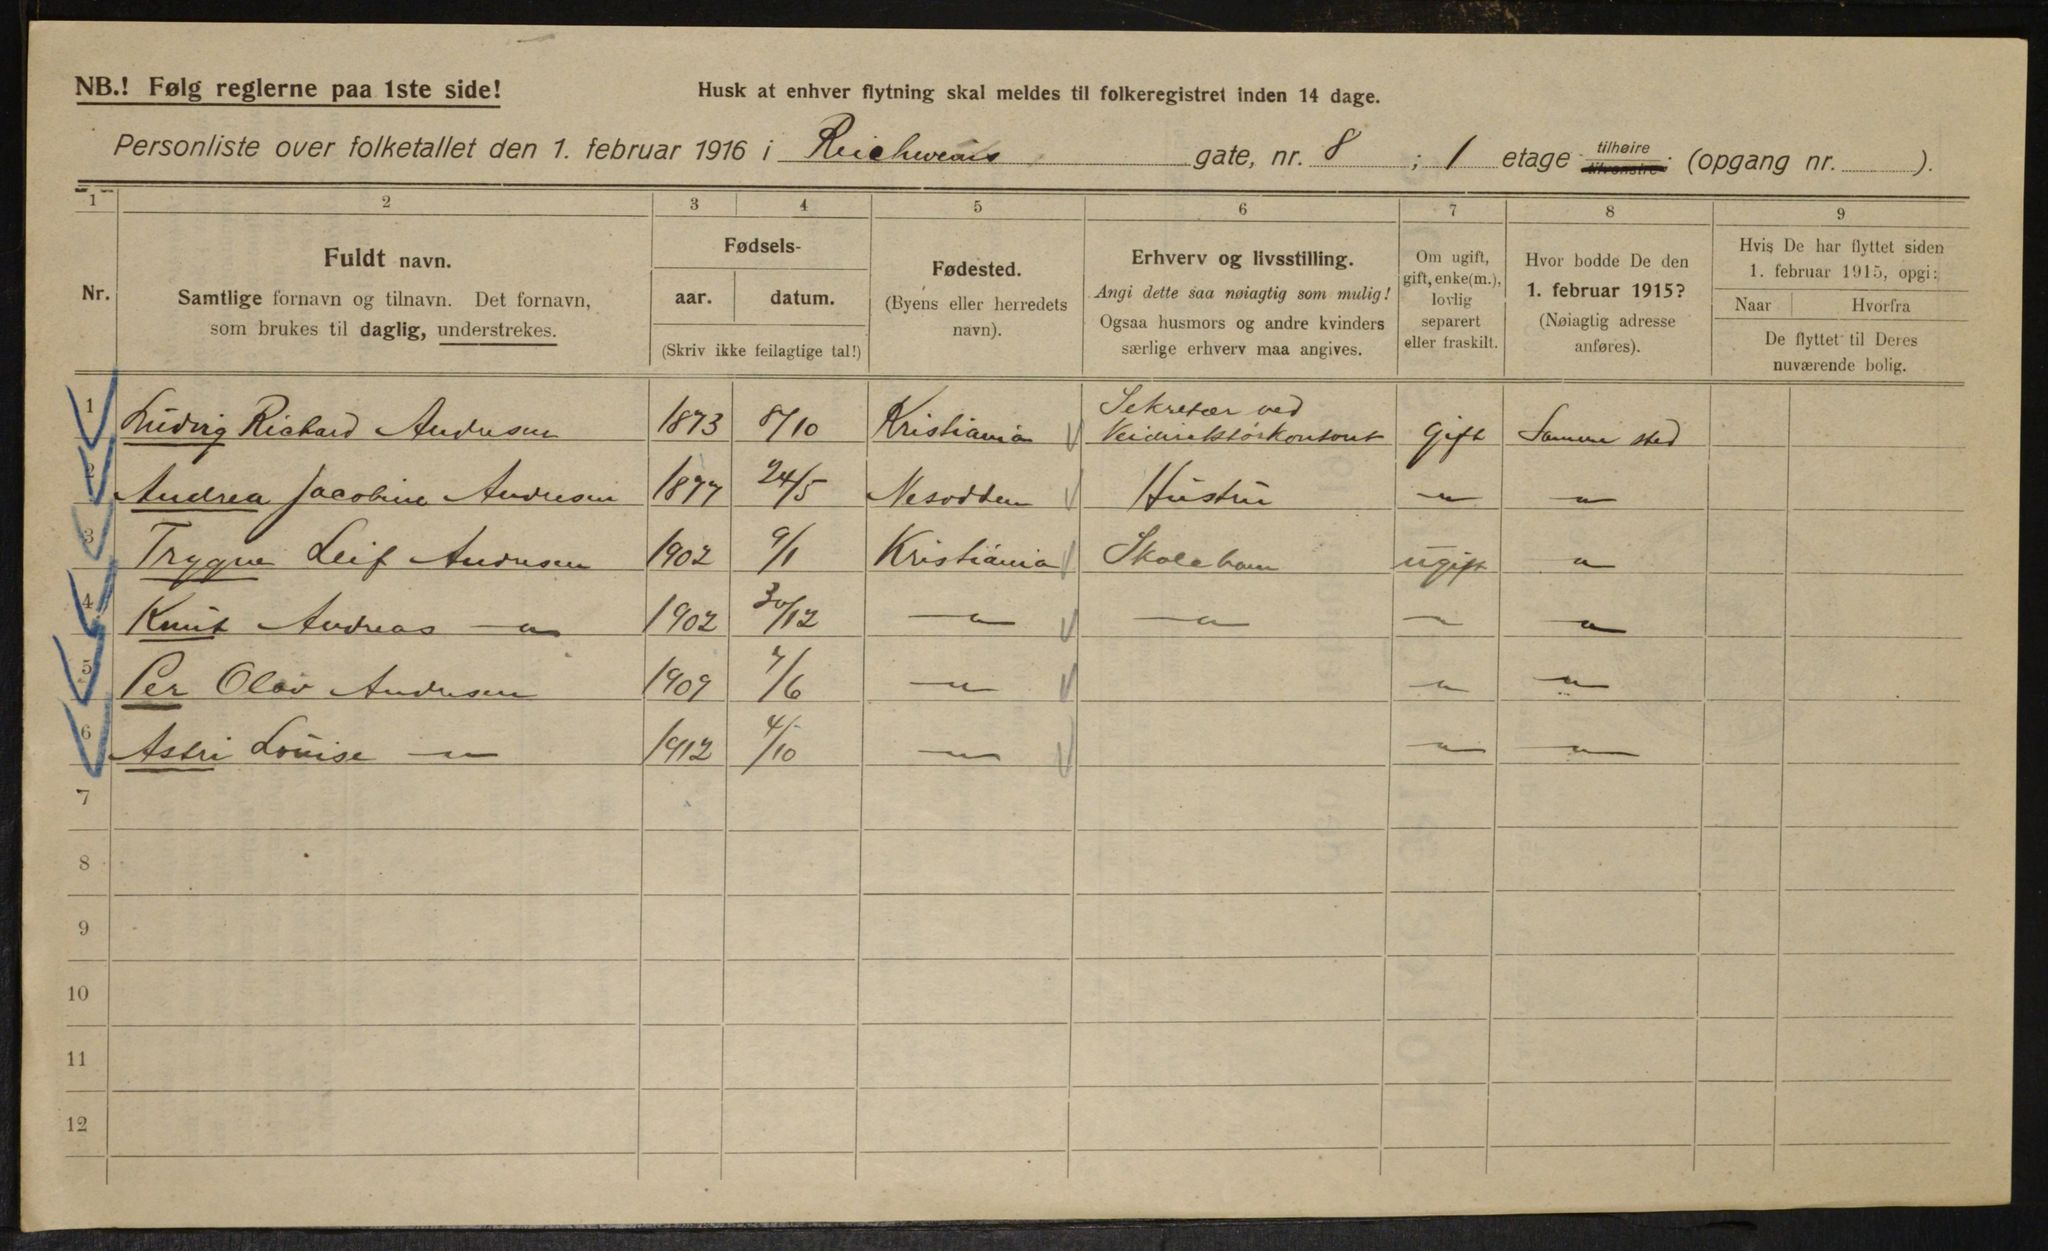 NB.! Følg reglerne paa 1ste side!
Husk at enhver flytning skal meldes til folkeregistret inden 14 dage.
Personliste over folketallet den 1. februar 1916 i Reichweins gate, nr. 8 ; 1 etage tilhøire tilvenstre (opgang nr. ).
1 2 3 4 5 6 7 8 9
Nr.
Fuldt navn.
Samtlige fornavn og tilnavn. Det fornavn,
som brukes til daglig, understrekes.
Fødsels-
aar. datum.
(Skriv ikke feilagtige tal!)
Fødested.
(Byens eller herredets
navn).
Erhverv og livsstilling.
Angi dette saa nøiagtig som mulig!
Ogsaa husmors og andre kvinders
særlige erhverv maa angives.
Om ugift,
gift, enke(m.),
lovlig
separert
eller fraskilt.
Hvor bodde De den
1. februar 1915?
(Nøiagtig adresse
anføres).
Hvis De har flyttet siden
1. februar 1915, opgi:
Naar Hvorfra
De flyttet til Deres
nuværende bolig.
1 Ludvig Richard Andresen 1873 8/10 Kristiania Sekretær ved Veidirektørkontoret Gift Samme sted
2 Andrea Jacobine Andresen 1877 24/5 Nesodden Hustru — " — — " —
3 Trygve Leif Andresen 1902 9/1 Kristiania Skolebarn ugift — " —
4 Knut Andreas — " — 1902 30/12 — " — — " — — " — — " —
5 Per Olav Andresen 1909 7/6 — " — — " — — " —
6 Astri Louise — " — 1912 4/10 — " — — " — — " —
7
8
9
10
11
12